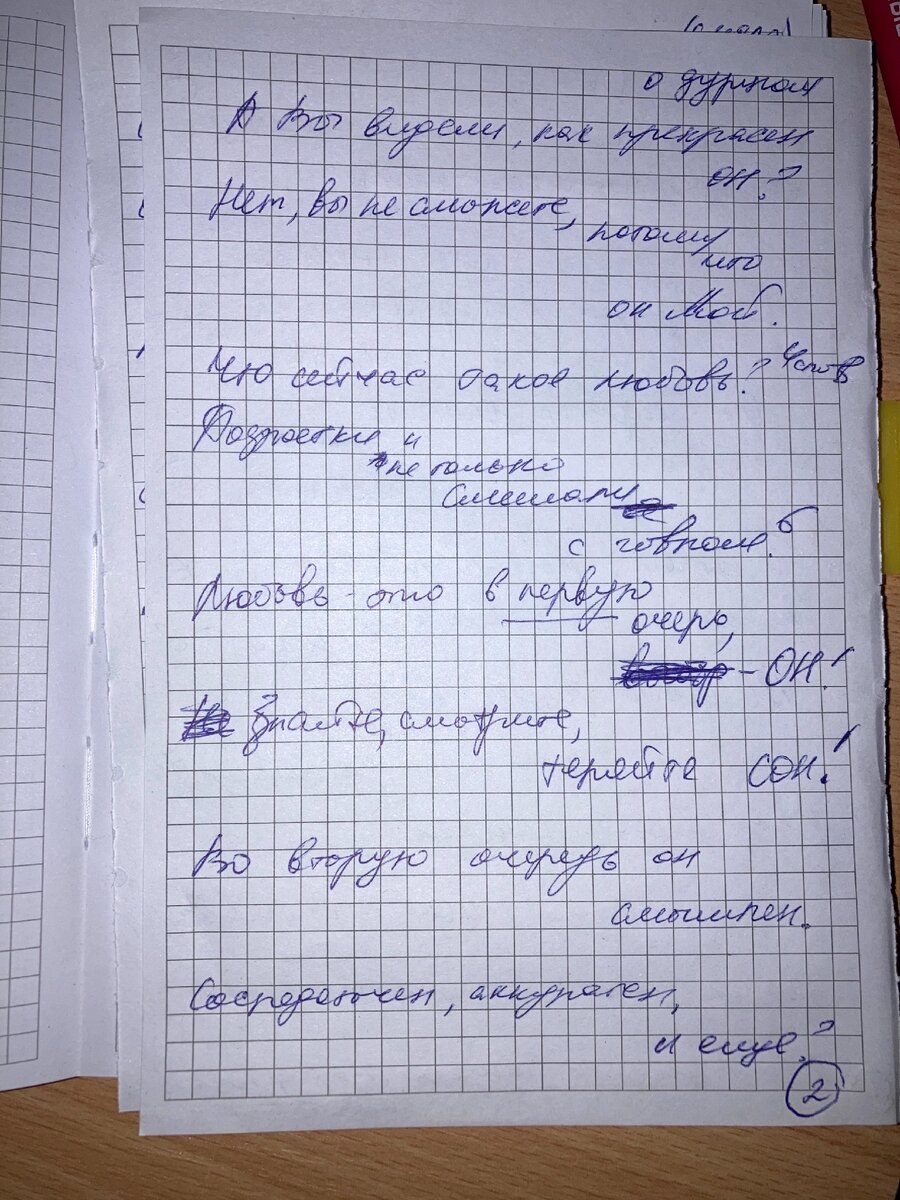 о дурном
А Вы видели, как прекрасен
он?
Нет, вы не сможете,
потому
что
он Мой.
Что сейчас такое любовь?
Подростки и
не только
Смешали
с говном.
Любовь - это в первую
очерь,
- ОН!
Знайте, смотрите,
теряйте СОН!
Во вторую очередь он
смышлен.
Сосредоточен, аккуратен,
и еще?
2